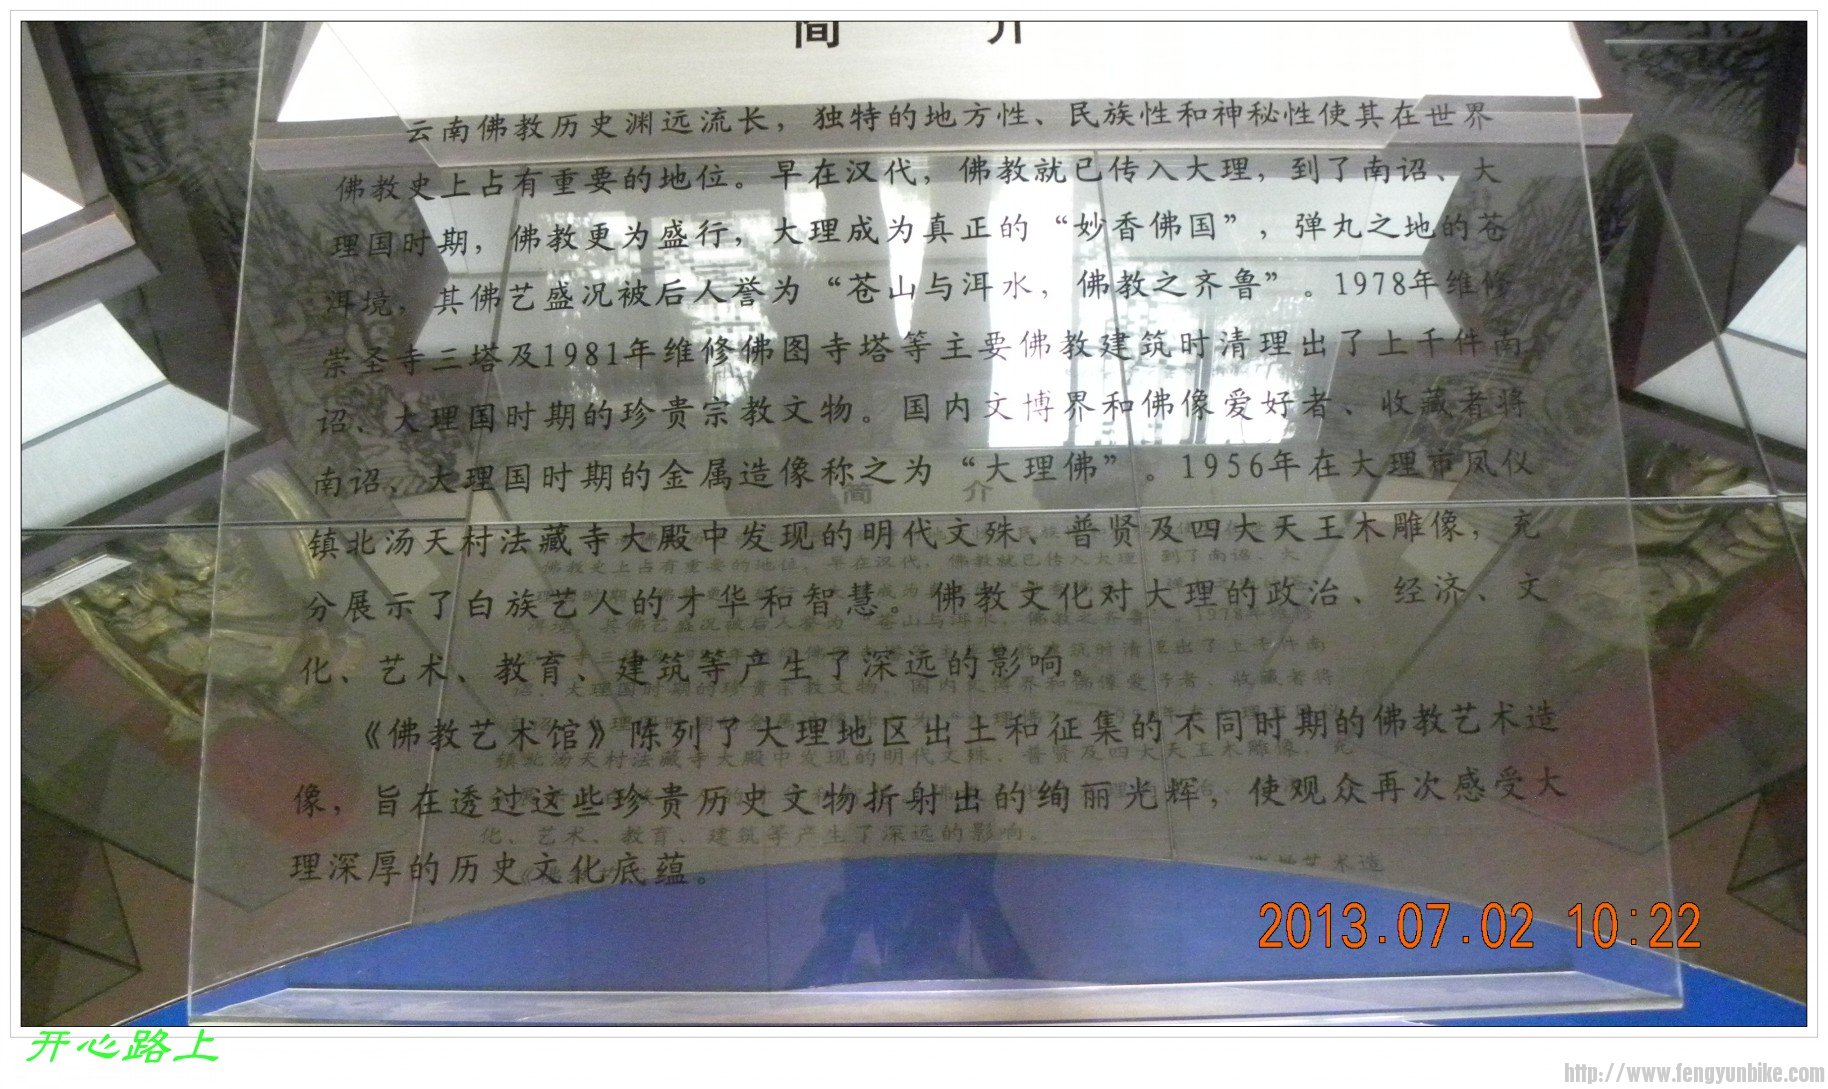 简 介
云南佛教历史渊远流长，独特的地方性、民族性和神秘性使其在世界
佛教史上占有重要的地位。早在汉代，佛教就已传入大理，到了南诏、大
理国时期，佛教更为盛行，大理成为真正的“妙香佛国”，弹丸之地的苍
洱境，其佛艺盛况被后人誉为“苍山与洱水，佛教之齐鲁”。1978年维修
崇圣寺三塔及1981年维修佛图寺塔等主要佛教建筑时清理出了上千件南
诏、大理国时期的珍贵宗教文物。国内文博界和佛像爱好者、收藏者将
南诏、大理国时期的金属造像称之为“大理佛”。1956年在大理市凤仪
镇北汤天村法藏寺大殿中发现的明代文殊、普贤及四大天王木雕像，充
分展示了白族艺人的才华和智慧。佛教文化对大理的政治、经济、文
化、艺术、教育、建筑等产生了深远的影响。
《佛教艺术馆》陈列了大理地区出土和征集的不同时期的佛教艺术造
像，旨在透过这些珍贵历史文物折射出的绚丽光辉，使观众再次感受大
理深厚的历史文化底蕴。
2013.07.02 10:22
开心路上
http://www.fengyunbike.com